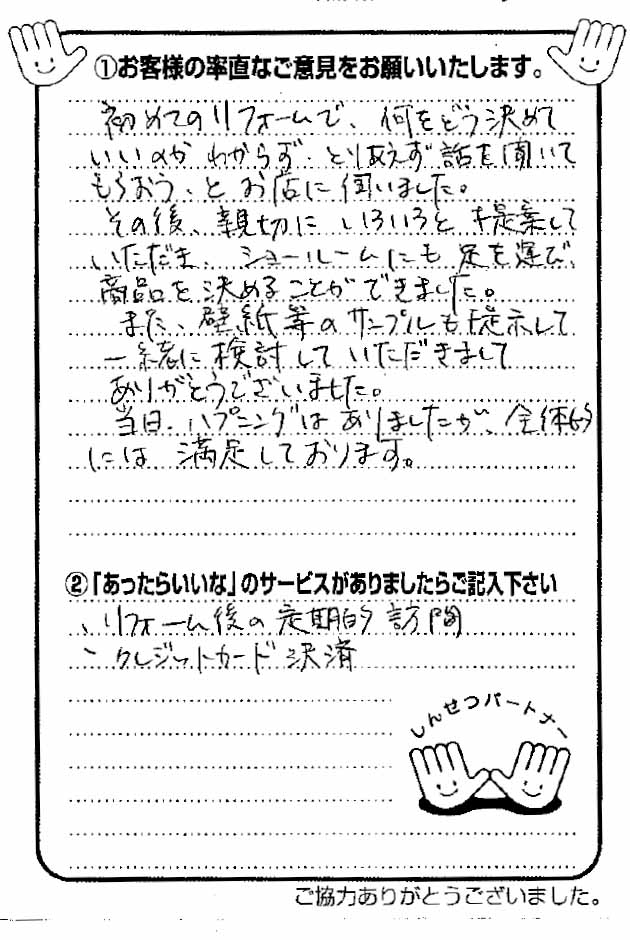 ①お客様の率直なご意見をお願いいたします。
初めてのリフォームで、何をどう決めて
いいのかわからず、とりあえず話を聞いて
もらおう、とお店に伺いました。
その後、親切にいろいろと提案して
いただき、ショールームにも足を運び、
商品を決めることができました。
また、壁紙等のサンプルも提示して
一緒に検討していただきまして
ありがとうございました。
当日、ハプニングはありましたが、全体的
には満足しております。
②「あったらいいな」のサービスがありましたらご記入下さい
、リフォーム後の定期的訪問
、クレジットカード決済
しんせつパートナー
ご協力ありがとうございました。